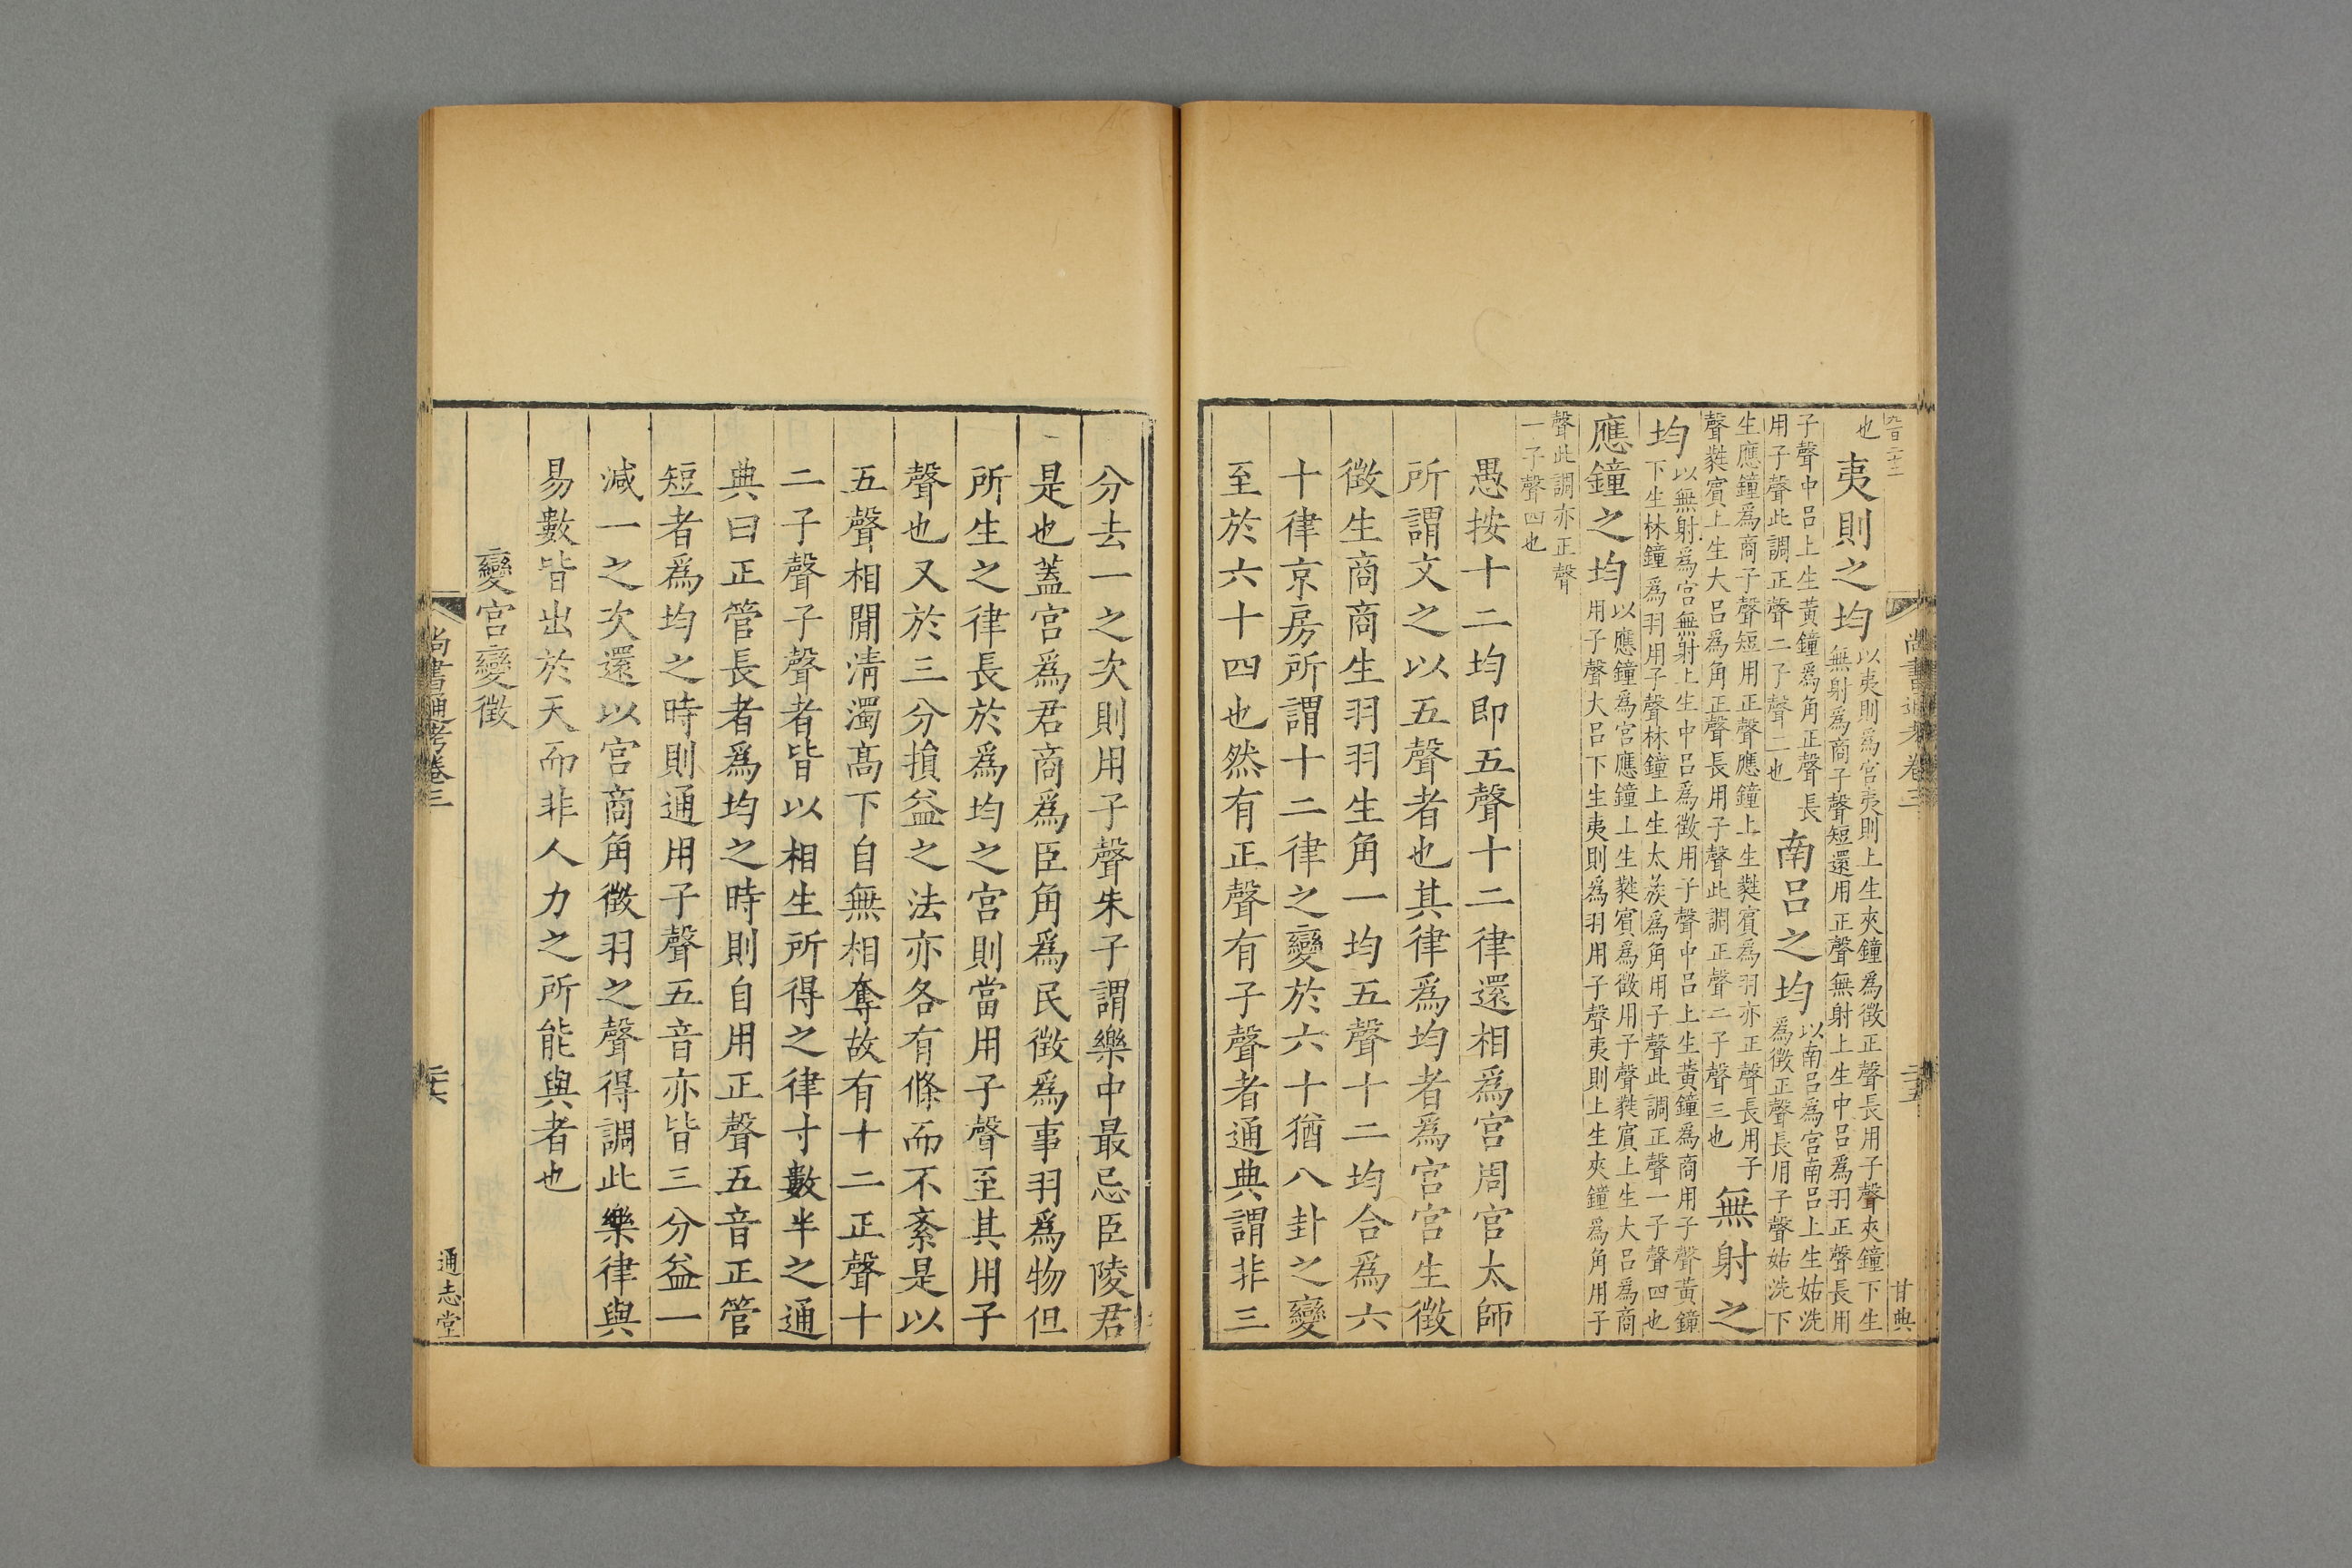 九百二十二
尚書通考卷三
二十五
甘典
也
夷則之均
以夷則爲宮夷則上生夾鐘爲徵正聲長用子聲夾鐘下生
無射爲商子聲短還用正聲無射上生中呂爲羽正聲長用
子聲中呂上生黃鐘爲角正聲長
用子聲此調正聲二子聲二也
南呂之均
以南呂爲宮南呂上生姑洗
爲徵正聲長用子聲姑洗下
生應鐘爲商子聲短用正聲應鐘上生蕤賓爲羽亦正聲長用子
聲蕤賓上生大呂爲角正聲長用子聲此調正聲二子聲三也
無射之
均
以無射爲宮無射上生中呂爲徵用子聲中呂上生黃鐘爲商用子聲黃鐘
下生林鐘爲羽用子聲林鐘上生太蔟爲角用子聲此調正聲一子聲四也
應鐘之均
以應鐘爲宮應鐘上生蕤賓爲徵用子聲蕤賓上生大呂爲商
用子聲大呂下生夷則爲羽用子聲夷則上生夾鐘爲角用子
聲此調亦正聲
一子聲四也
愚按十二均即五聲十二律還相爲宮周官太師
所謂文之以五聲者也其律爲均者爲宮宮生徵
徵生商商生羽羽生角一均五聲十二均合爲六
十律京房所謂十二律之變於六十猶八卦之變
至於六十四也然有正聲有子聲者通典謂非三
分去一之次則用子聲朱子謂樂中最忌臣陵君
是也蓋宮爲君商爲臣角爲民徵爲事羽爲物但
所生之律長於爲均之宮則當用子聲至其用子
聲也又於三分損益之法亦各有條而不紊是以
五聲相閒清濁高下自無相奪故有十二正聲十
二子聲子聲者皆以相生所得之律寸數半之通
典曰正管長者爲均之時則自用正聲五音正管
短者爲均之時則通用子聲五音亦皆三分益一
減一之次還以宮商角徵羽之聲得調此樂律與
易數皆出於天而非人力之所能與者也
變宮變徵
尚書通考卷三
二十六
通志堂